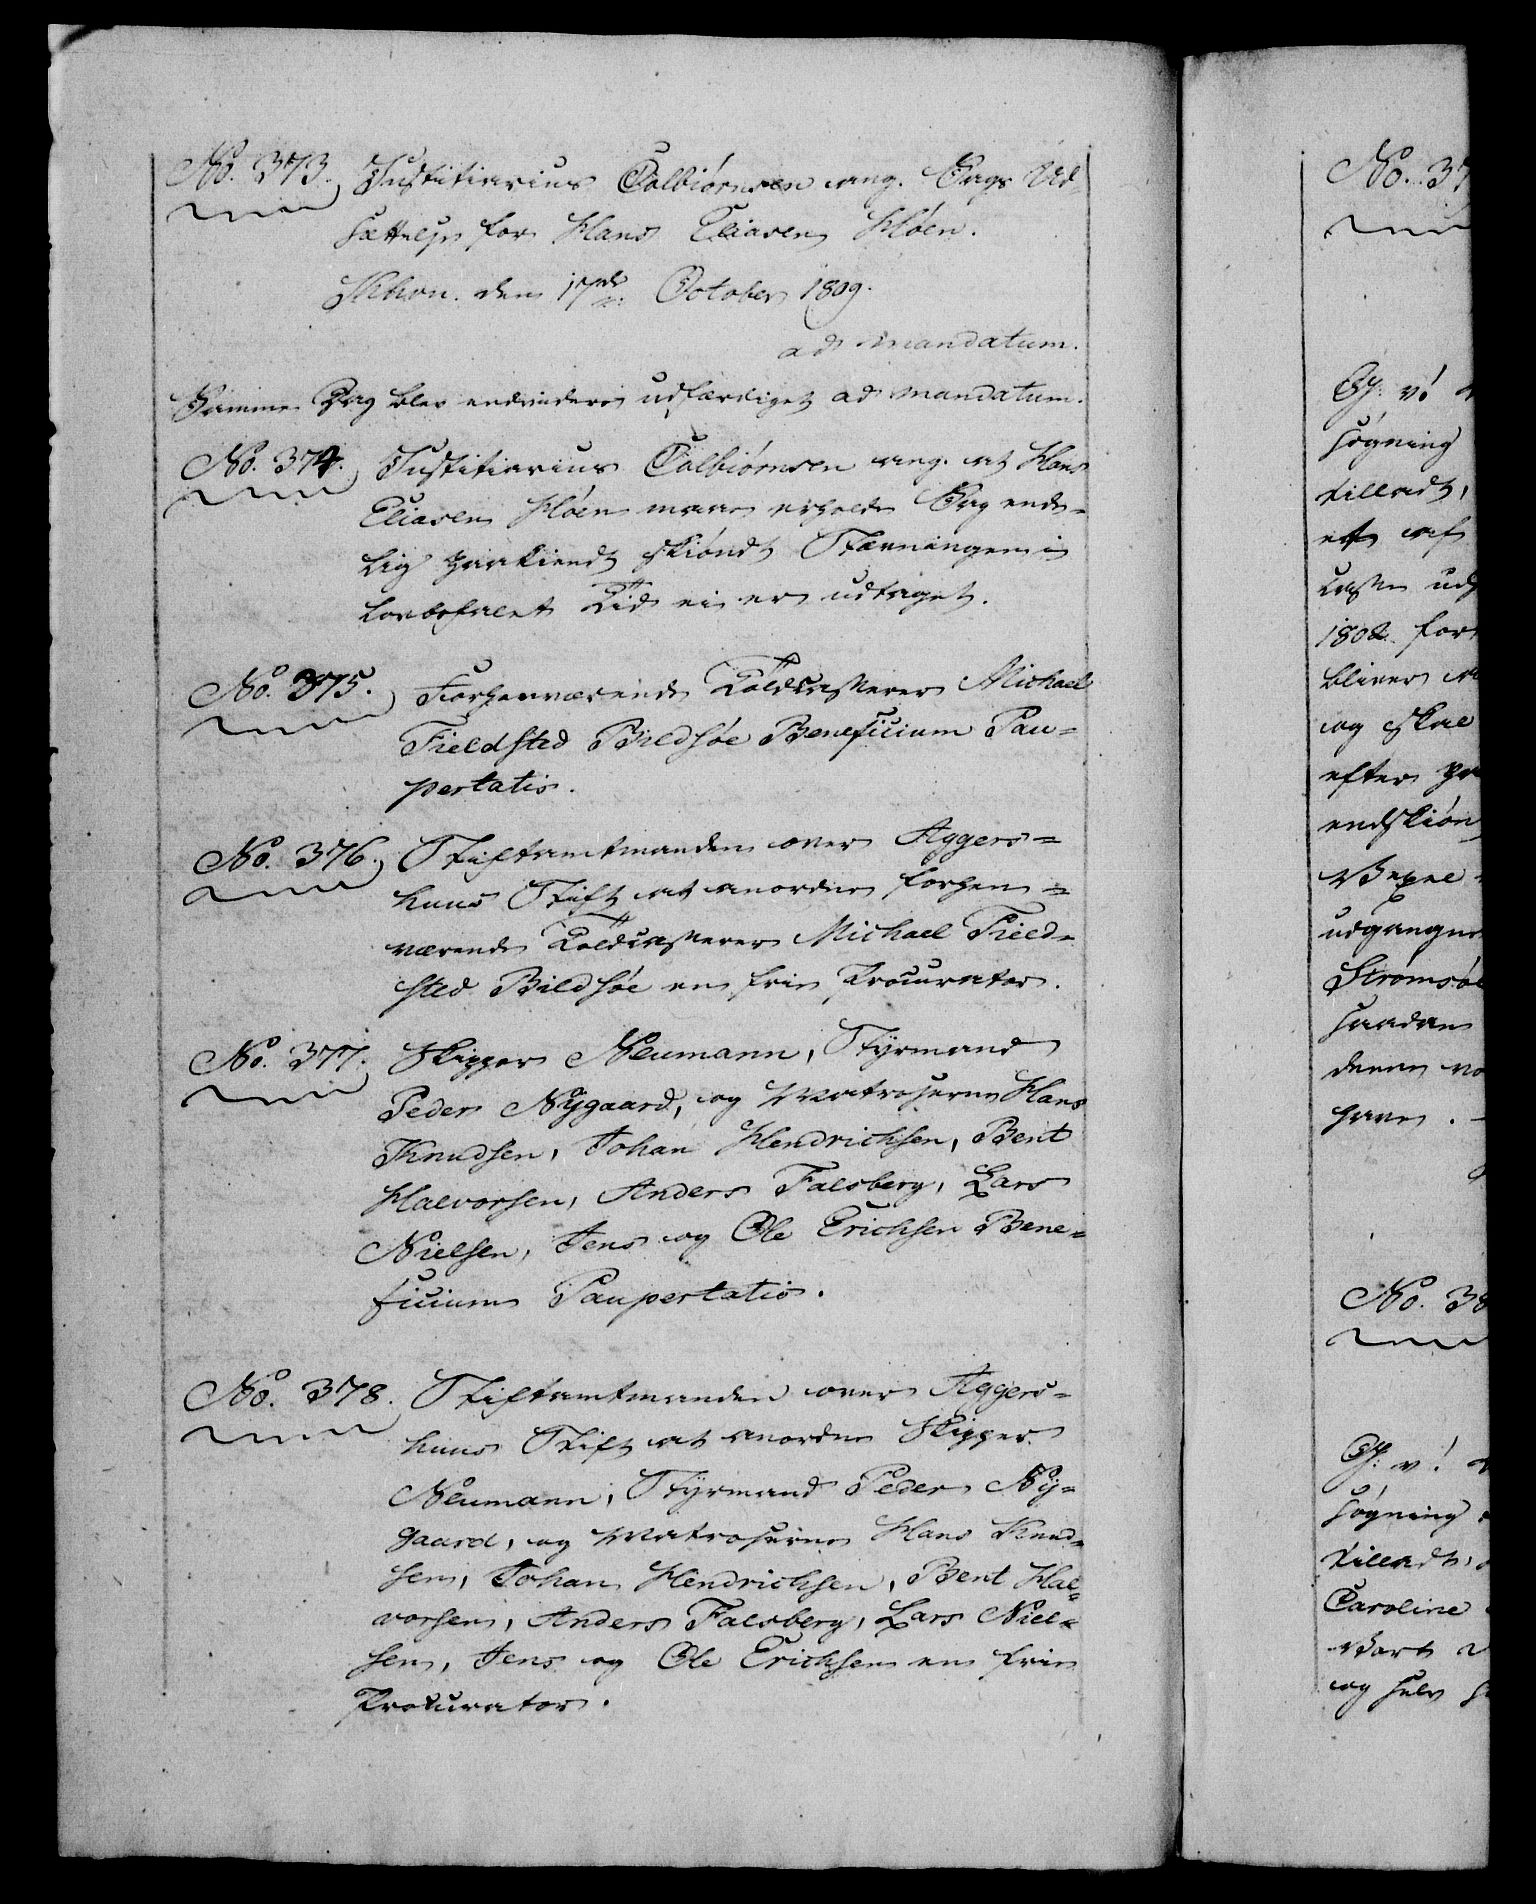 No. 373. Justitiarius Colbiørnsen ang. Sags Ud
sættelse for Hans Eliasen Høen.
Xthion. den 17de October 1809.
ad mandatum.
Samme Dag blev endvidere udfærdiget ad mandatum.
No. 374. Justitiarius Colbiørnsen ang. at Hans
Eliasen Høen maae erholde Sag ende-
lig paakiendt skiøndt Stævningen i
lovbefalet Tid ei er udtaget.
No. 375. Forhenværende Toldkasserer Michael
Fieldsted Bildsøe Beneficium Pau-
pertatis.
No. 376. Stiftamtmanden over Aggers-
huus Stift at anordne forhen-
værende Toldkasserer Michael Field-
sted Bildsøe en frie Procurator.
No. 377. Skipper Neumann, Styrmand
Peder Nygaard, og Matroserne Hans
Knudsen, Johan Hendrichsen, Bent
Halvorsen, Anders Falsberg, Lars
Nielsen, Jens og Ole Erichsen Bene-
ficium Paupertatis.
No. 378. Stiftamtmanden over Aggers-
huus Stift at anordne Skipper
Neumann, Styrmand Peder Ny-
gaard, og Matroserne Hans Knud-
sen, Johan Hendrichsen, Bent Hal-
vorsen, Anders Falsberg, Lars Niel-
sen, Jens og Ole Erichsen en frie
Procurator.
No. 37
søgning
tilladt,
et af
1802 for
bliver
og skal
efter
endskiøn
udgangne
Strømsøe
saadan
denne
have.
No. 38
søgning
tilladt,
Caroline
Vort
og selv